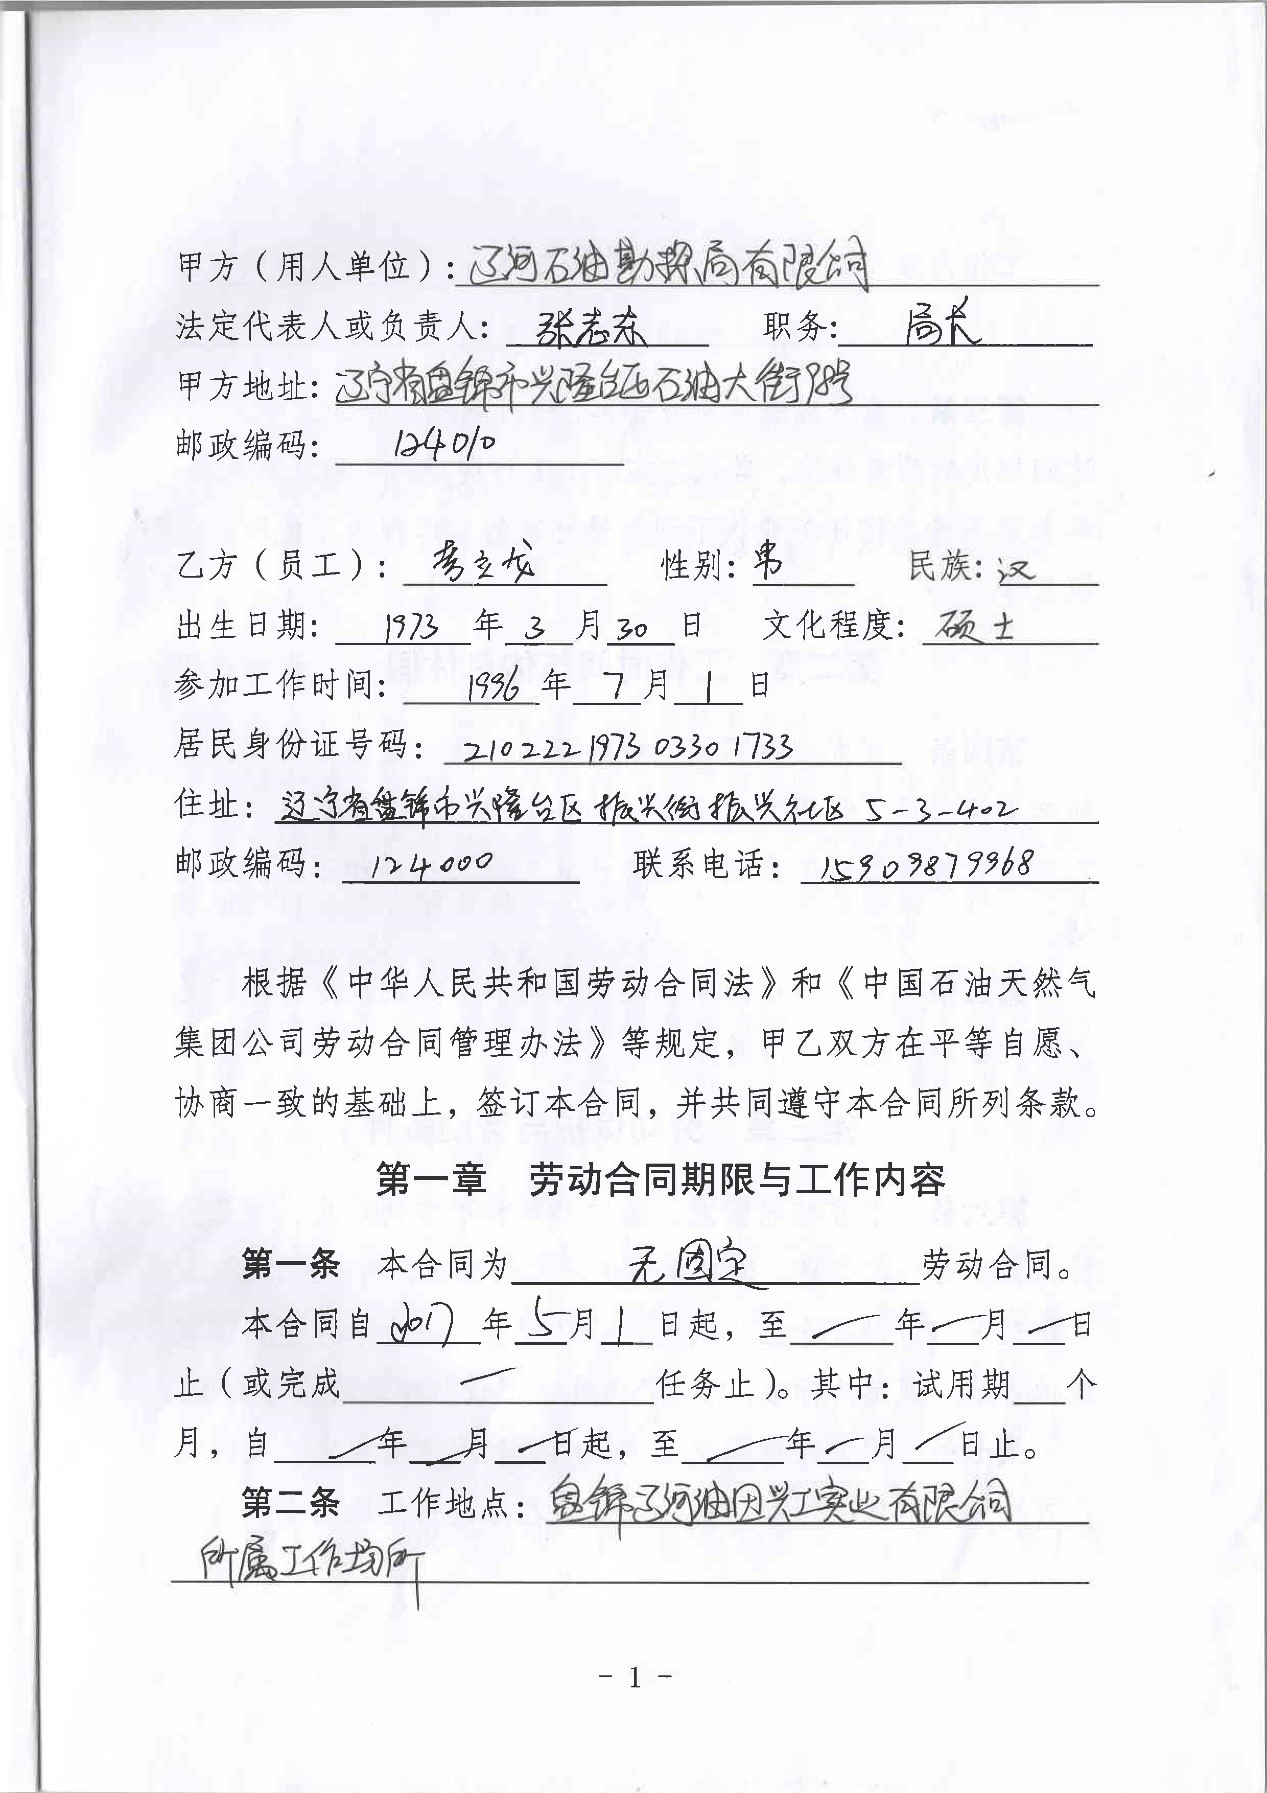 甲方（用人单位）：辽河石油勘探局有限公司
法定代表人或负责人： 张志东 职务： 局长
甲方地址：辽宁省盘锦市兴隆台区石油大街98号
邮政编码： 124010
乙方（员工）： 立龙 性别：男 民族：汉
出生日期： 1973 年 3 月 30 日 文化程度： 硕士
参加工作时间： 1996 年 7 月 1 日
居民身份证号码： 210222197303301733
住址：辽宁省盘锦市兴隆台区振兴街振兴社区 5-3-402
邮政编码： 124000 联系电话： 15909879968
根据《中华人民共和国劳动合同法》和《中国石油天然气
集团公司劳动合同管理办法》等规定，甲乙双方在平等自愿、
协商一致的基础上，签订本合同，并共同遵守本合同所列条款。
第一章 劳动合同期限与工作内容
第一条 本合同为 无固定 劳动合同。
本合同自 2017 年 5 月 1 日起，至 — 年 — 月 — 日
止（或完成 — 任务止）。其中：试用期 个
月，自 — 年 — 月 — 日起，至 — 年 — 月 — 日止。
第二条 工作地点：盘锦辽河油田兴工实业有限公司
所属工作场所
- 1 -